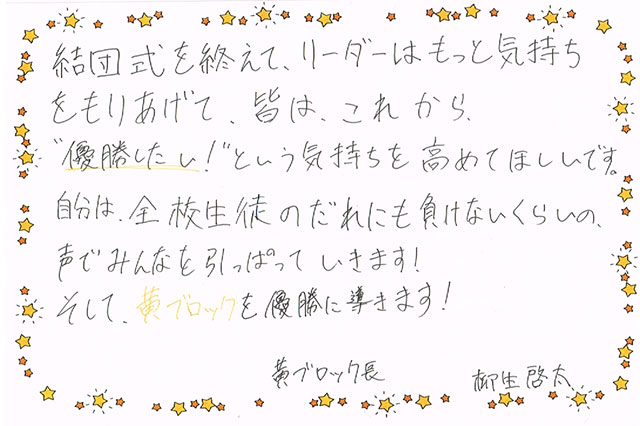 結団式を終えて、リーダーはもっと気持ち
をもりあげて、皆は、これから、
"優勝したい!"という気持ちを高めてほしいです。
自分は、全校生徒のだれにも負けないくらいの、
声でみんなを引っぱっていきます!
そして、黄ブロックを優勝に導きます!
黄ブロック長 柳生啓太